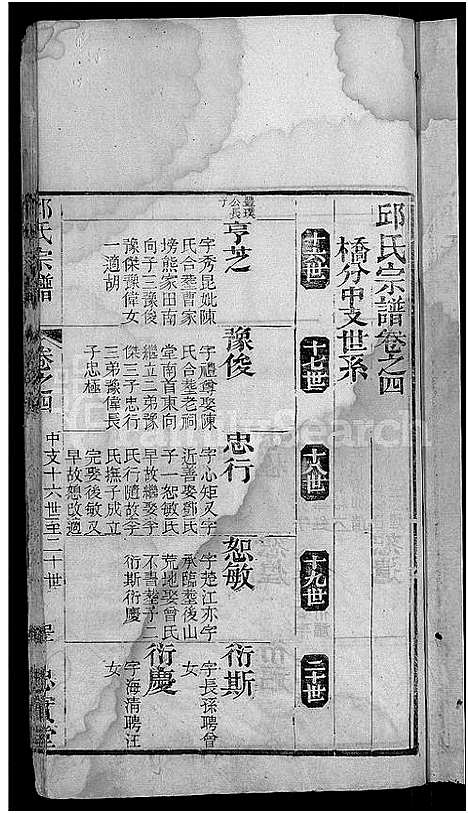 邱氏宗譜卷之四
橋分中支世系
十六世
十七世
十八世
十九世
二十世
豊璞公長子
亨芝
字秀昆妣陳
氏合塟曹家
塝熊家田南
向子二豫俊
豫傑豫偉女
一適胡
豫俊
字禮尊娶陳
氏合塟老祠
堂南首東向
繼立二弟豫
傑三子忠行
三弟豫偉長
子忠極
忠行
字心矩又字
近善娶鄧氏
子一恕敏氏
早故繼娶李
氏行隨故李
氏撫子成立
完娶後敏又
早故恕改適
恕敏
字楚江亦字
承臨塟後山
荒地娶曾氏
不書塟子二
衍斯衍慶
衍斯
字長孫聘曾
女
衍慶
字海清聘汪
女
邱氏宗譜
卷之四
中支十六世至二十世
忠實堂
FamilySearch